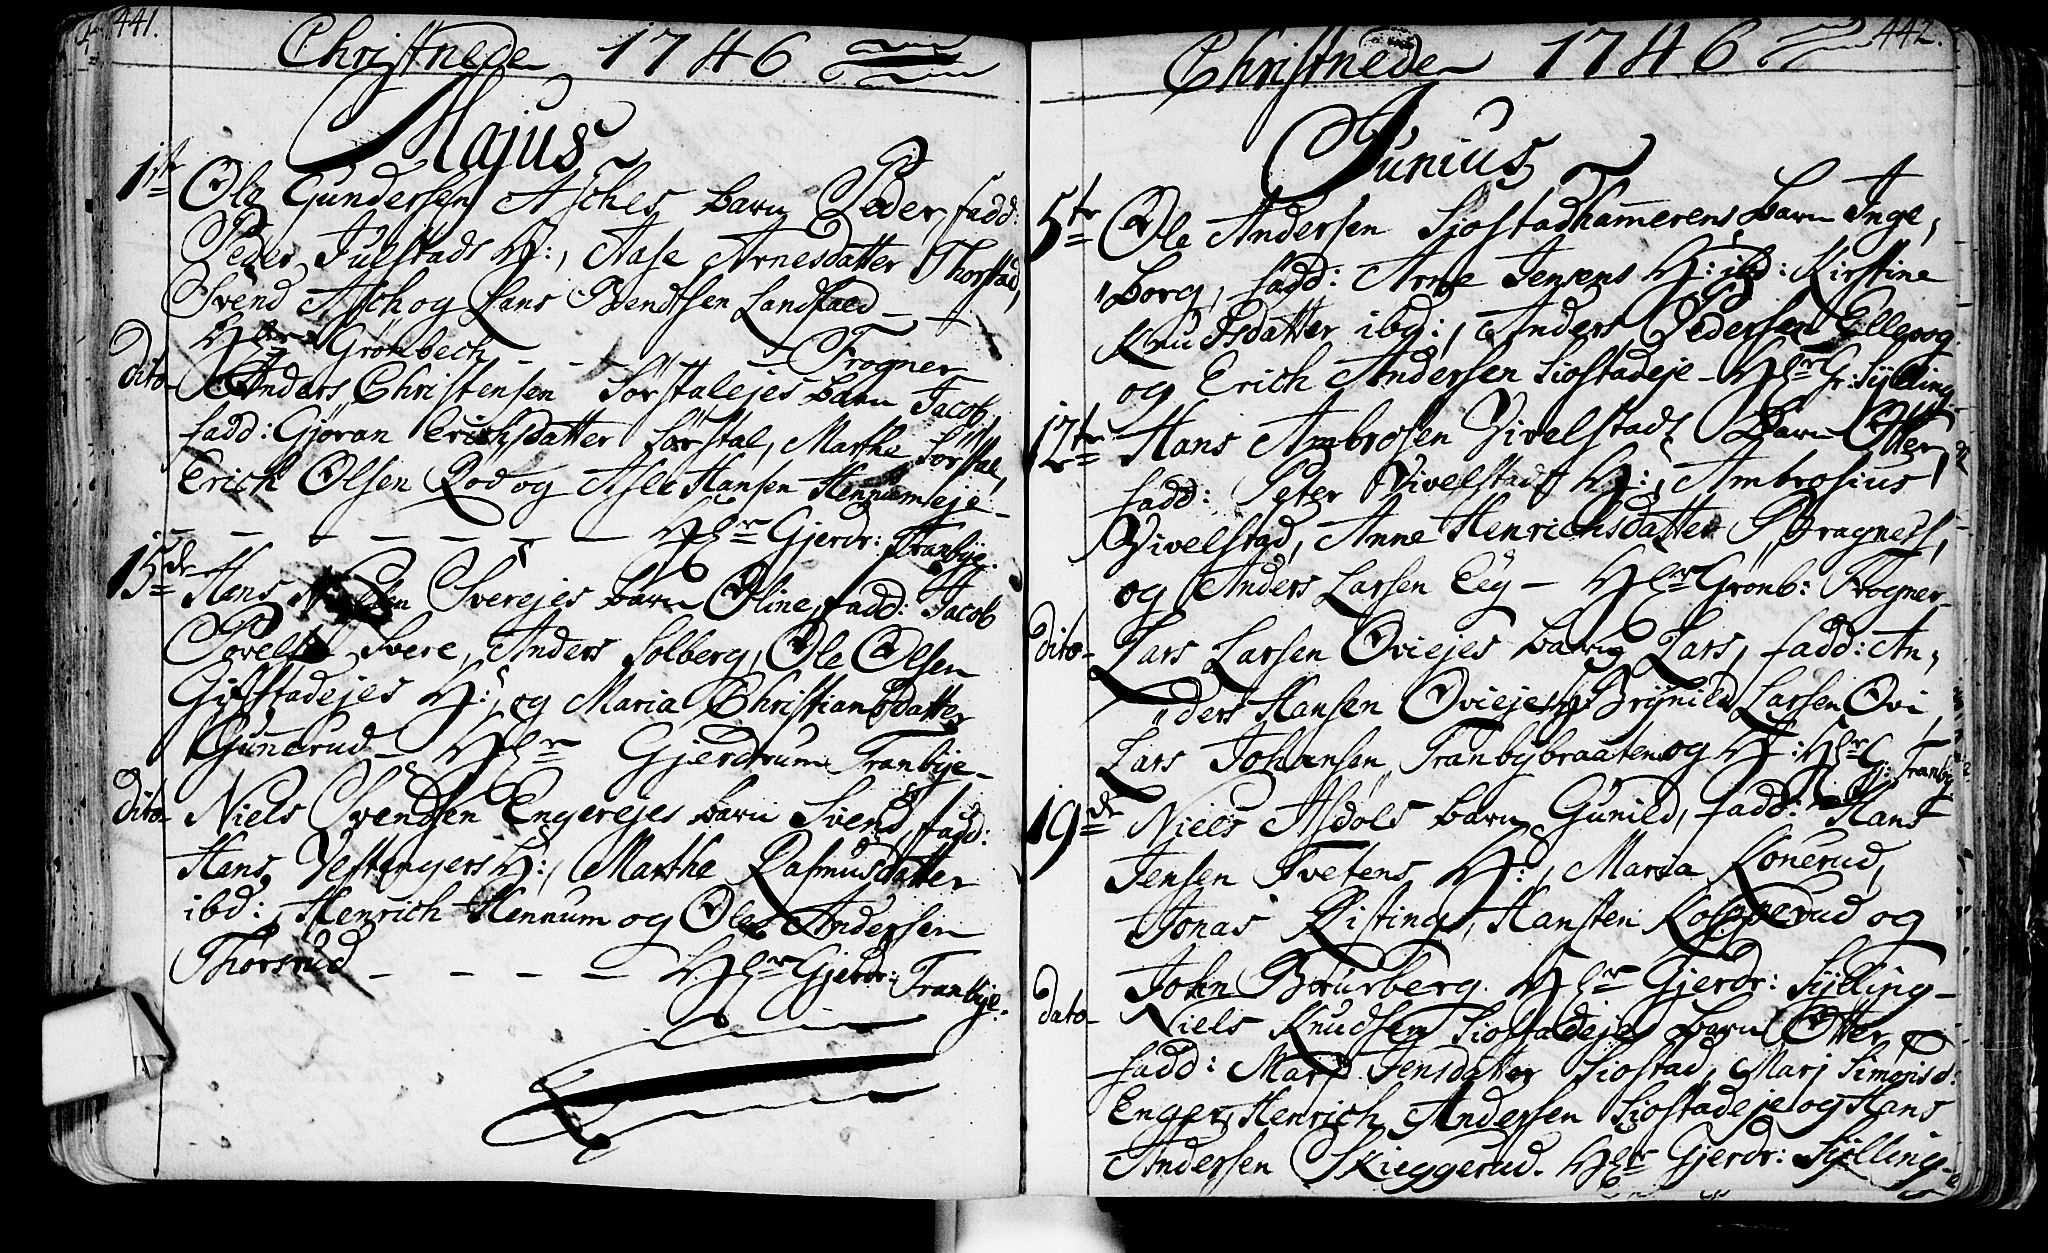 441.
Christnede 1746
Majus
1ste Ole Gundersen Asches barn Peder, fadd:
Peder Julstads H:, Aase Arnesdatter Thorstad,
Svend Asch og Hans Bendtsen Landfald
Hr Grönbech - - - - Frogner
dito Anders Christensen Sörstalejes barn Jacob,
fadd: Gjöran Erichsdatter Sörstal, Marthe Sörstal,
Erich Olsen Röd og Asle Hansen Hennumeje -
- - - - - - - Hr Gjerdr: Tranbye.
15de Hans Sverejes barn Oline, fadd: Jacob
Povelsen Svere, Anders Solberg, Ole Olsen
Gifstadejes H:, og Maria Christiansdatter
Gunerud - Hr Gjerdrum Tranbye -
dito Niels Svendsen Engerejes barn Svend, fadd:
Hans Vestengers H:, Marthe Rasmusdatter
ibd:, Henrich Hennum og Ole Andersen
Thorsrud - - - - Hr Gjerdr: Tranbye.
442.
Christnede 1746
Junius
5te Ole Andersen Siostadhammerens barn Inge,
"borg, fadd: Arne Jensens H: ibd: Kirstine
Knudsdatter ibd:, Anders Pedersen Ellevog
og Erich Andersen Siostadeje - Hr Gr: Sylling
12te Hans Ambrosen Vivelstads barn Otter,
fadd: Peter Vivelstads H:, Ambrosius
Vivelstad, Anne Henrichsdatter Bragness,
og Anders Larsen Eeg - Hr Grönb: Frogner -
dito Lars Larsen Oviejes barn Lars, fadd: An,
"ders Hansen Ovieje, Brynild Larsen Ovi,
Lars Johansen Tranbybraaten og H: Hr G: Tranby
19de Niels Asdöls barn Gunild, fadd: Hans
Jensen Tvetens H:, Maria Konerud,
Jonas Kisting, Hansten Kopperud og
John Bourberg. Hr Gjerdr: Sylling -
dato Niels Knudsen Siostadejes barn Otter
fadd: Mari Jensdatter Siostad, Mari Simonsd:
Enger, Henrich Andersen Siostadeje og Hans
Andersen Skieggerud. Hr Gjerdr: Sylling -